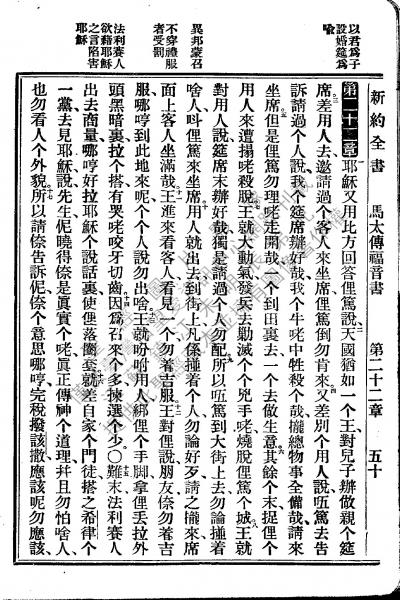 以君爲子
設婚筵爲
喩
異邦蒙召
不穿禮服
者受割
法利賽人
欲藉耶穌
之言陷害
耶穌
新約全書 馬太傳福音書 第二十二章 五十
第二十二章 耶穌又用比方回答俚篤說天國猶如一个王對兒子辦做親个筵
席差用人去邀請過个客人來坐席俚篤倒勿肯來又差別个用人說㑚篤去告
訴請過个人說我个筵席辦好哉我个牛咾中牲殺个哉攏總物事全備哉請來
坐席但是俚篤勿理咾走開哉一个到田裏去一个去做生意其餘个末捉俚个
用人來遭撮咾殺脫王就大動氣發兵去勦滅个个兇手咾燒脫俚篤个城王就
對用人說筵席末辦好哉獨是請過个人勿配所以㑚篤到大街上去勿論撞着
啥人呌俚篤來坐席用人就出去到街上凡係撞着个人勿論好歹請之攏來席
面上客人坐滿哉王進來看客人看見一个勿着吉服王對俚說朋友㑚勿着吉
服哪哼到此地來呢个个人說勿出啥王就吩咐用人綁俚个手脚拿俚丟拉外
頭黑暗裏拉个搭有哭咾咬牙切齒因爲召來个多揀選个少○難末法利賽人
出去商量哪哼好拉耶穌个說話裏使俚落圈套就差自家个門徒搭之希律个
一黨去見耶穌說先生伲曉得㑚是眞實个咾眞正傳神个道理幷且勿怕啥人
也勿看人个外貌所以請㑚告訴伲㑚个意思哪哼完稅撥該撒應該呢勿應該